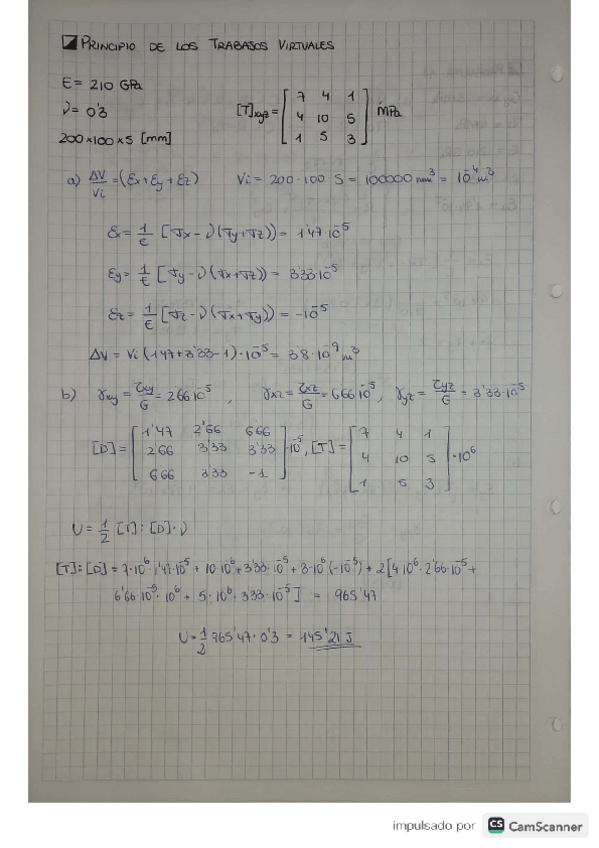 PRINCIPIO DE LOS TRABAJOS VIRTUALES
E = 210 GPa
ν = 0'3
200×100×5 [mm]
[T]xyz = [7 4 1
4 10 5
1 5 3] MPa
a) ΔV/Vi = (Ex + Ey + Ez) Vi = 200 · 100 · 5 = 100000 mm³ = 10⁻⁴ m³
Ex = 1/E [σx - ν(σy + σz)) = 1'47·10⁻⁵
Ey = 1/E [σy - ν(σx + σz)) = 3'33·10⁻⁵
Ez = 1/E [σz - ν(σx + σy)) = -10⁻⁵
ΔV = Vi (1'47 + 3'33 - 1)·10⁻⁵ = 3'8·10⁻⁹ m³
b) γxy = τxy/G = 2'66·10⁻⁵, γxz = τxz/G = 6'66·10⁻⁵, γyz = τyz/G = 3'33·10⁻⁵
[D] = [1'47 2'66 6'66
2'66 3'33 3'33
6'66 3'33 -1] ·10⁻⁵, [T] = [7 4 1
4 10 5
1 5 3] ·10⁶
U = 1/2 [T] : [D] · ν
[T] : [D] = 7·10⁶·1'47·10⁻⁵ + 10·10⁶ + 3'33·10⁻⁵ + 3·10⁶(-10⁻⁵) + 2[4·10⁶·2'66·10⁻⁵ +
6'66·10⁻⁵·10⁶ + 5·10⁶·3'33·10⁻⁵] = 965'47
U = 1/2 965'47 · 0'3 = 145'21 J
impulsado por CS CamScanner